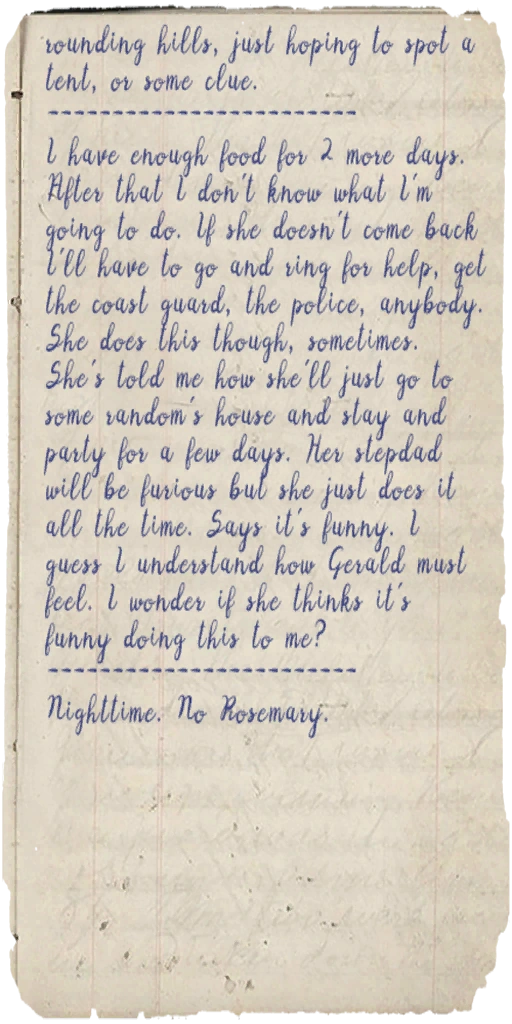 rounding hills, just hoping to spot a
tent, or some clue.
-----------------------------
I have enough food for 2 more days.
After that I don't know what I'm
going to do. If she doesn't come back
I'll have to go and ring for help, get
the coast guard, the police, anybody.
She does this though, sometimes.
She's told me how she'll just go to
some random's house and stay and
party for a few days. Her stepdad
will be furious but she just does it
all the time. Says it's funny. I
guess I understand how Gerald must
feel. I wonder if she thinks it's
funny doing this to me?
-----------------------------
Nighttime. No Rosemary.